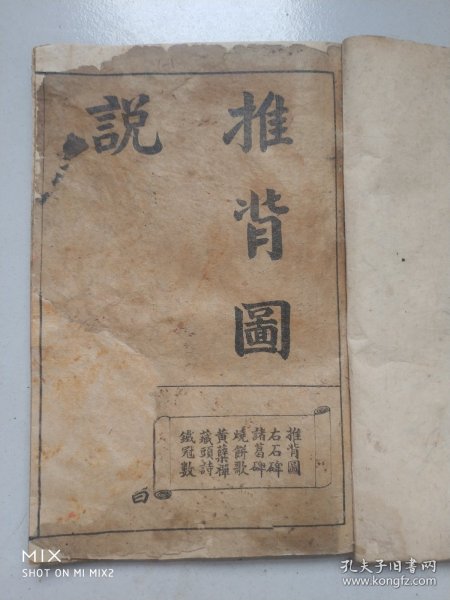 推背圖
説
推背圖
右石碑
諸葛碑
燒餅歌
黄蘗禪
藏頭詩
鐵冠數
MIX
SHOT ON MI MIX2
孔夫子旧书网
www.kongfz.com